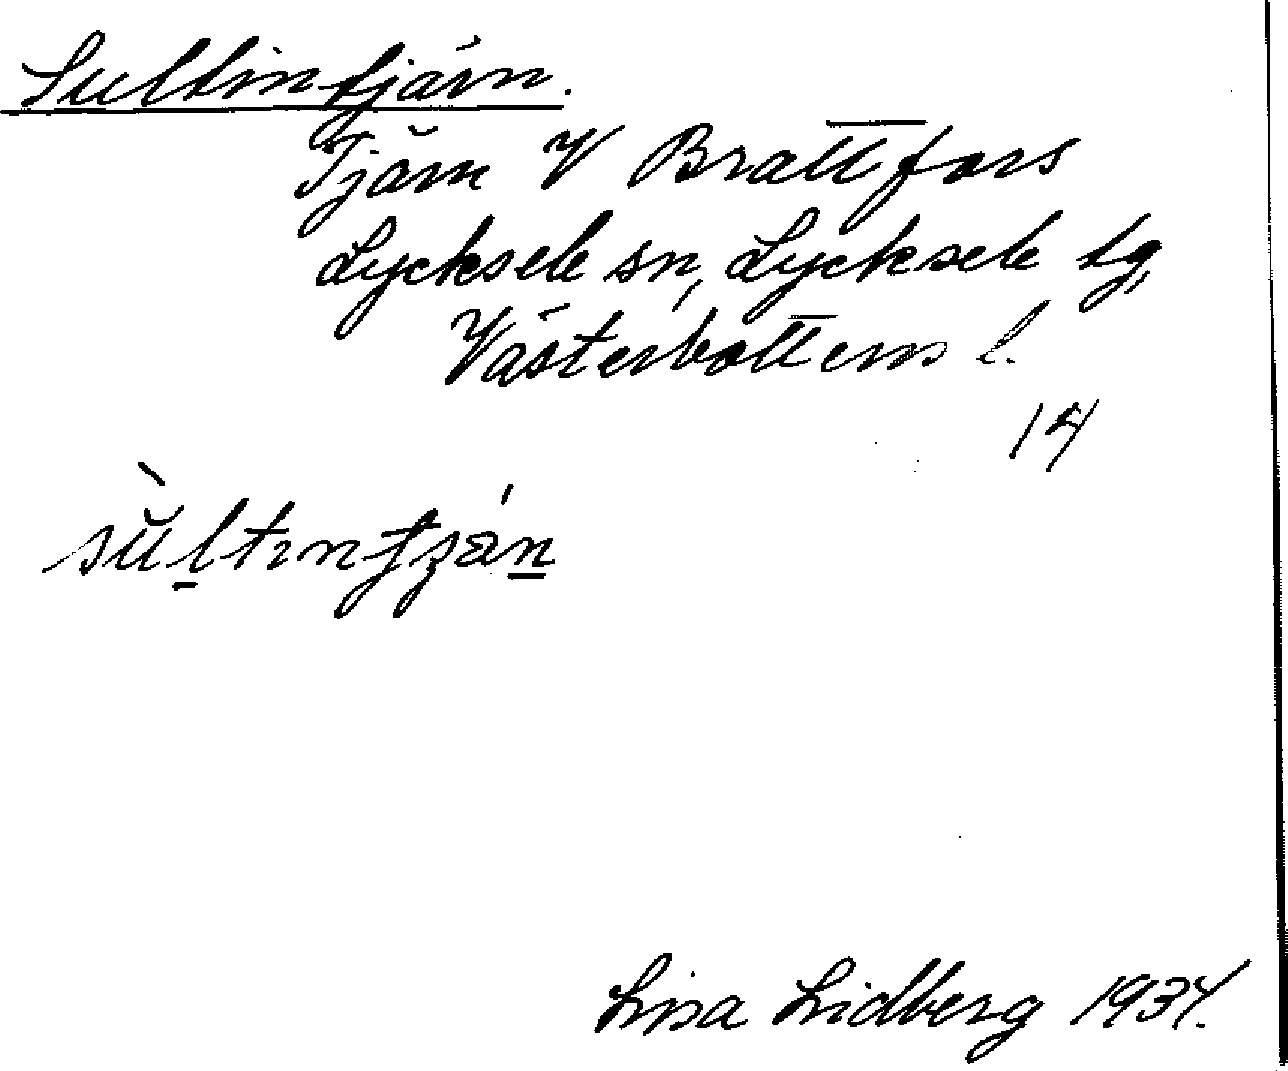 Sultintjärn.
Tjärn V Brattfors
Lycksele sn, Lycksele tg,
Västerbottens l.
14
sùltıntȷzǽn
Lisa Lidberg 1934.